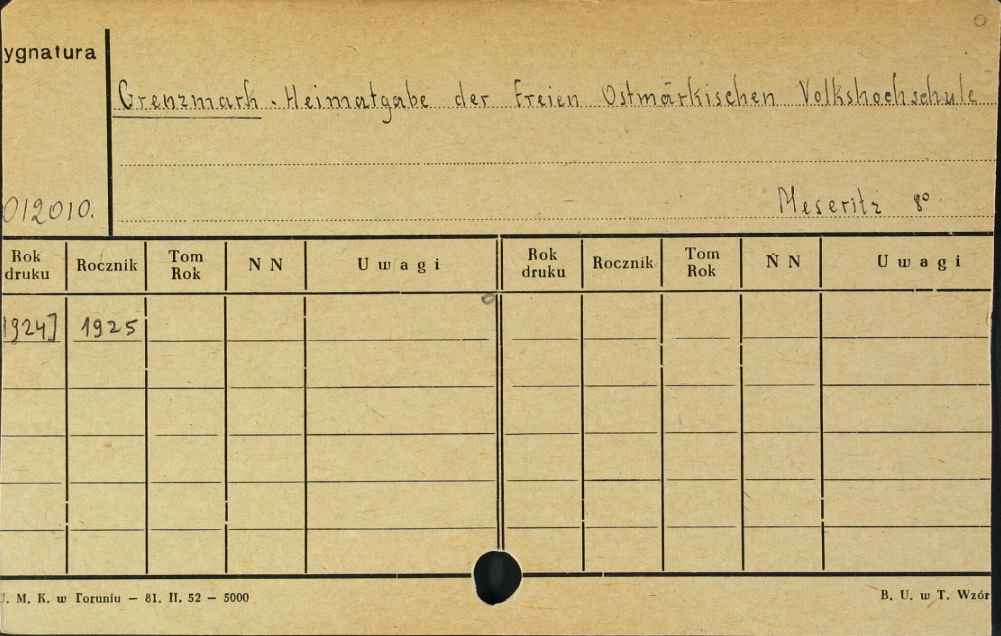 ygnatura
Grenzmark. Heimatgabe der Freien Ostmärkischen Volkshochschule
012010.
Meseritz 8°
Rok druku Rocznik Tom Rok N N Uwagi Rok druku Rocznik Tom Rok N N Uwagi
1924] 1925
J. M. K. w Toruniu — 81. II. 52 — 5000
B. U. w T. Wzór